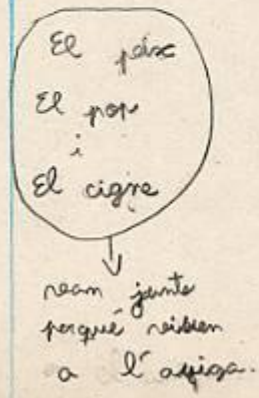 El peix
El pop
i
El cigne
van junts
perquè viuen
a l'aigua.